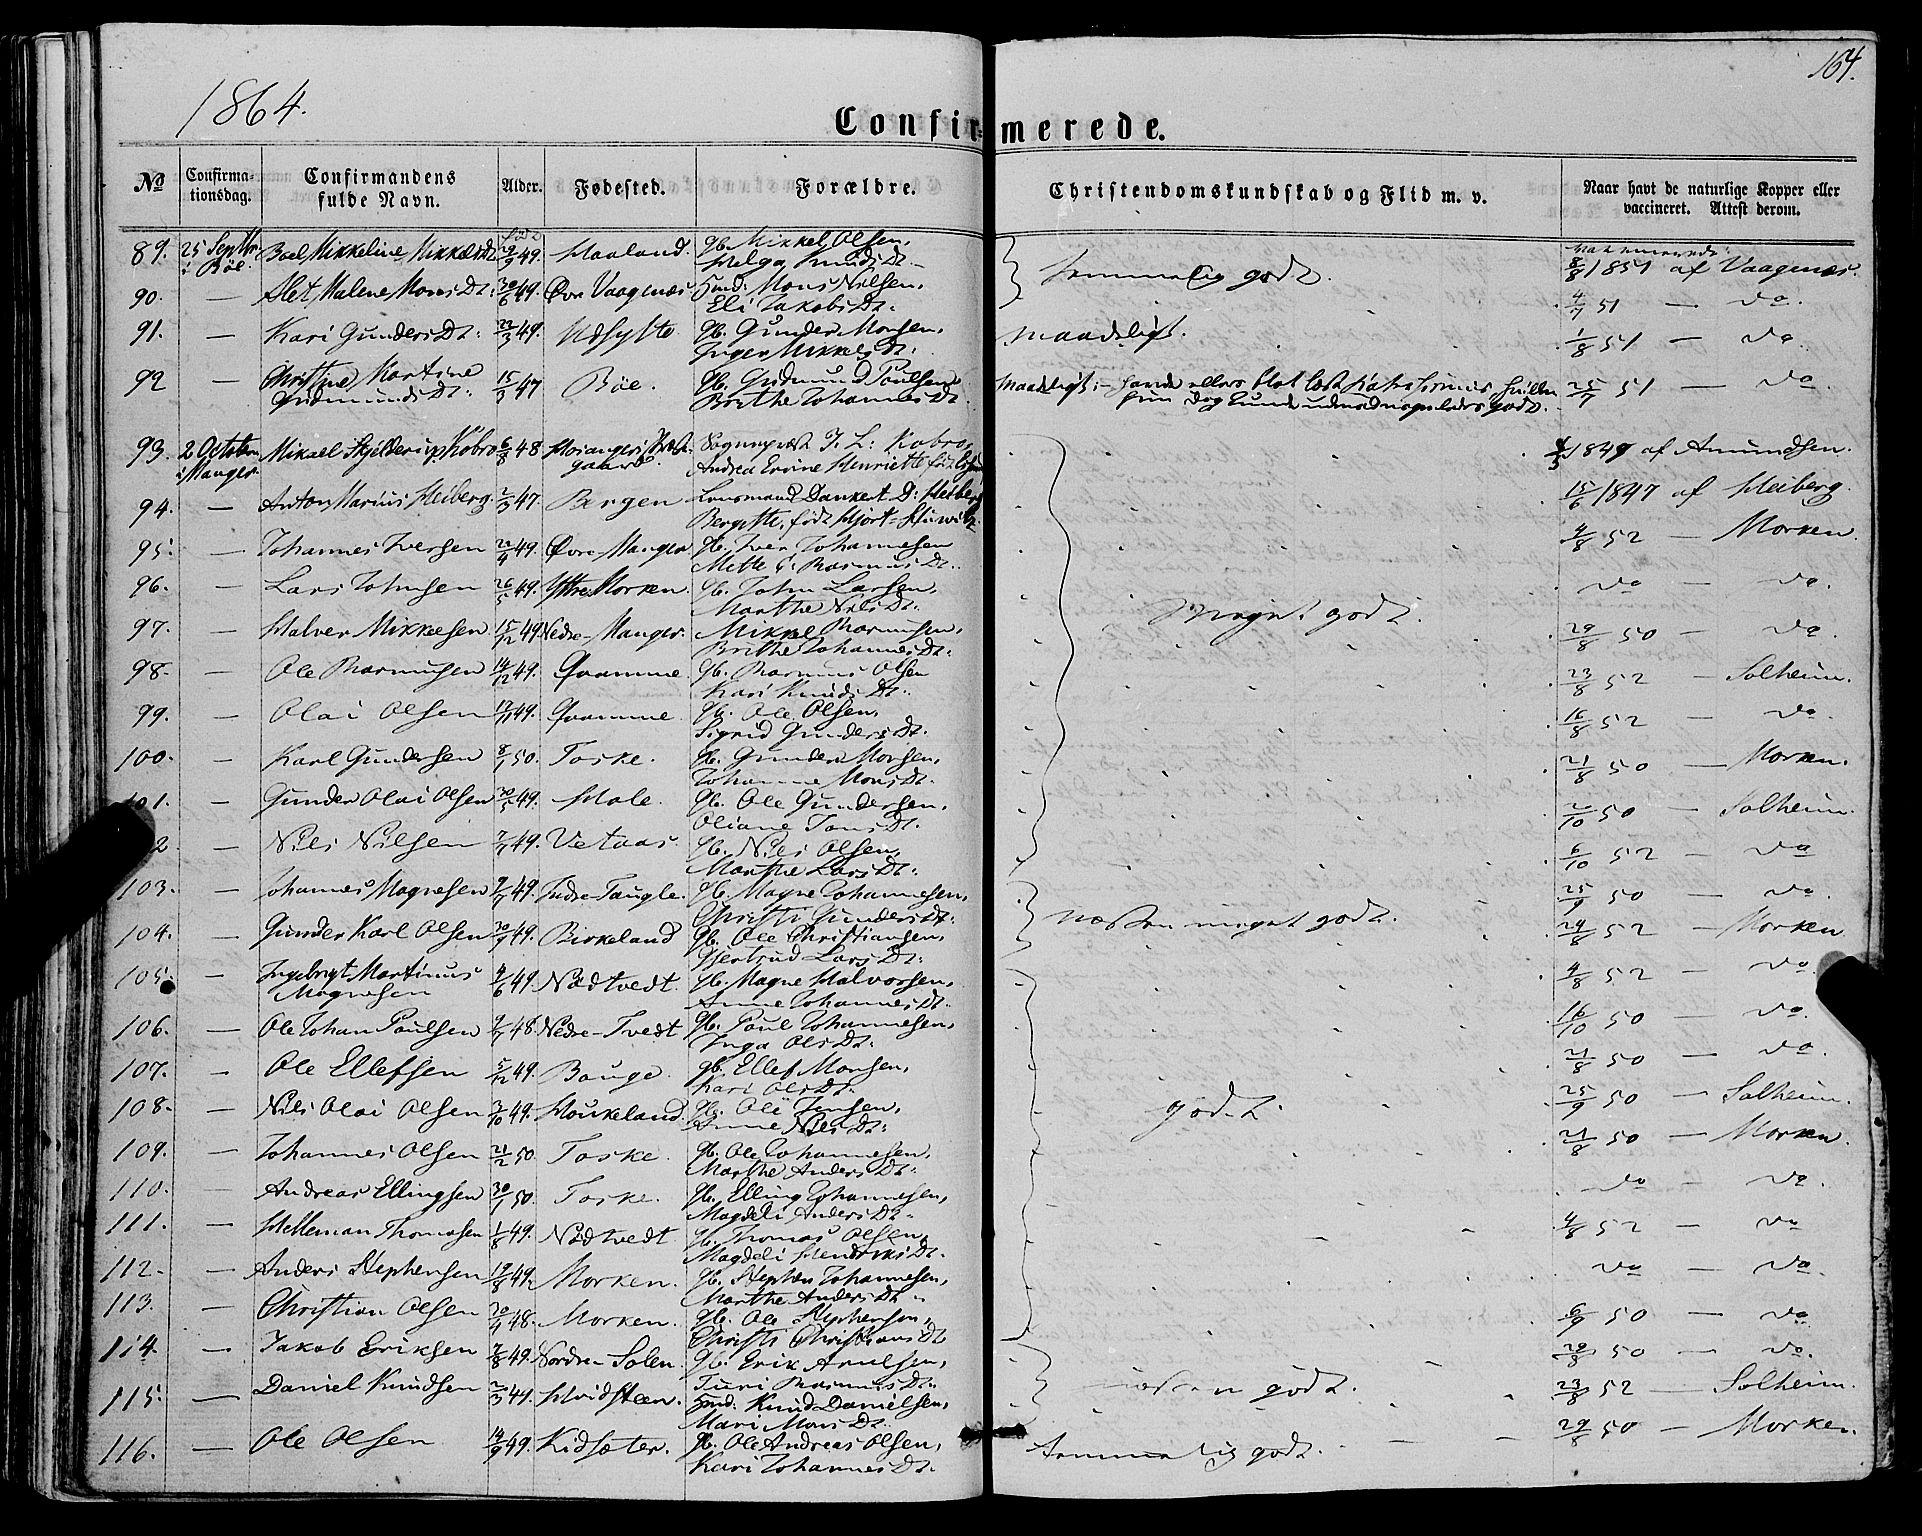 1864.
164.
Confirmerede.
No
Confirmationsdag.
Confirmandens fulde Navn.
Alder.
Fødested.
Forældre.
Christendomskundskab og Flid m. v.
Naar havt de naturlige Kopper eller vaccineret. Attest derom.
89. 25 Septbr i Böe. Mikkeline 29/3 49. Haaland. Gb. Mikkel Olsen, Helga Knudsdt. temmelig godt. 8/8 1851 af Vaagenæs.
90. — Alet Malene Monsdt: 30/6 49 Øvre Vaagenæs Huusmd: Mons Nilsen, Eli Jakobsdt: 4/7 51 — do.
91. — Kari Gundersdt: 23/3 49. Gb. Gunder Monsen, Inger Mikkelsdt: maadeligt. 1/8 51 — do
92 — Christine Martine Gudmundsdt: 15/3 47 Böe. Gb. Gudmund Paulsen Brithe Johannesdt. maadeligt: 25/7 51 — do
93. 2 October i Manger Mikael Skjelderup Kobro 6/8 48 Sognepræst J. L: Kobro, Andrea Henriette 1849 af Amundsen.
94. — Anton Marius Heiberg. 2/3 47. Bergen Lensmand Dankert D: Heiberg Bergitte, født Hjort 15/6 1847 af Heiberg.
95. — Johannes Iversen 49. Øvre Manger. Gb. Iver Johannesen Mette Rasmusdt: 4/8 52 — Morken.
96. — Lars Johnsen 26/5 49. Yttre Morken. Gb. John Larsen, Marthe Nilsdt: do — do.
97. — Halver Mikkelsen 15/12 49 Nedre Manger. Mikkel Rasmusen, Brithe Johannesdt: meget godt. 29/8 50 — do.
98. — Ole Rasmusen 14/12 49. Qvamme. Gb. Rasmus Olsen Kari Knudsdt: 23/8 52 — Solheim.
99. — Olai Olsen 13/11 49. Qvamme. Gb. Ole Olsen, Sigrid Gundersdt. 16/8 52 — do.
100. — Karl Gundersen 8/1 50. Toske. Gb. Gunder Monsen, Johanne Monsdt. 21/8 50 — Morken.
101. — Gunder Olai Olsen 30/5 49. Hole. Gb. Ole Gundersen, Oliane Jonsdt. 2/10 50 — Solheim.
2 — Nils Nilsen 7/7 49. Vetaas. Gb. Nils Olsen, Marthe Larsdt: 6/10 52 — do
103. — Johannes Magnesen 9/7 49. Indre-Taugle. Gb. Magne Johannesen, Christi Gundersdt: næsten meget godt. 25/9 50 — do
104. — Gunder Karl Olsen 30/9 49. Birkeland Gb. Ole Christiansen, Gjertrud Larsdt: 24/8 52 — Morken
105. — Ingebrigt Martinus Magnesen 4/6 49. Nødtvedt. Gb. Magne Halvorsen, Anne Johannesdt. 4/8 52 — do
106. — Ole Johan Paulsen 9/7 48. Nedre-Tvedt Gb. Paul Johannesen, Inga Olsdt: 16/10 50 — do.
107. — Ole Ellefsen 5/12 49. Bauge. Gb. Ellef Monsen, Kari Olsdt. 21/8 50 — do.
108. — Nils Olai Olsen 3/10 49. Houkeland. Gb. Ole Jensen, Anne Nilsdt: godt. 25/9 50 — Solheim.
109. — Johannes Olsen 21/2 50. Toske. Gb. Ole Johannesen, Marthe Andersdt: 21/8 50 — Morken.
110. — Andreas Ellingsen 30/1 50. Toske. Gb. Elling Johannesen, Magdeli Andersdt. do — do.
111. — Helleman Thomasen 1/8 49. Nødtvedt Gb. Thomas Olsen, Magdeli Hendriksdt. 4/8 52 — do
112. — Anders Stephensen 19/8 49. Morken. Gb. Stephen Johannesen, Marthe Andersdt. do — do.
113. — Christian Olsen 20/4 48. Morken. Gb. Ole Stephensen, Christi Christiansdt 6/9 50 — do
114 — Jakob Eriksen 7/8 49. Nordre-Solen. Gb. Erik Arnesen, Turi Rasmusdt: 50 — do.
115. — Daniel Knudsen 2/3 49. Hvidsteen. Huusmd. Knud Danielsen, Mari Monsdt. næsten godt. 23/8 52 — Solheim.
116. — Ole Olsen 14/9 49. Kidsæter. Gb. Ole Andreas Olsen, Kari Johannesdt. temmelig godt. 29/8 50 — Morken.